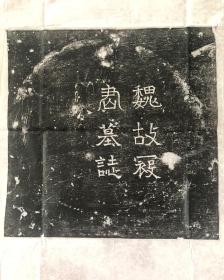 魏故寇
君墓誌